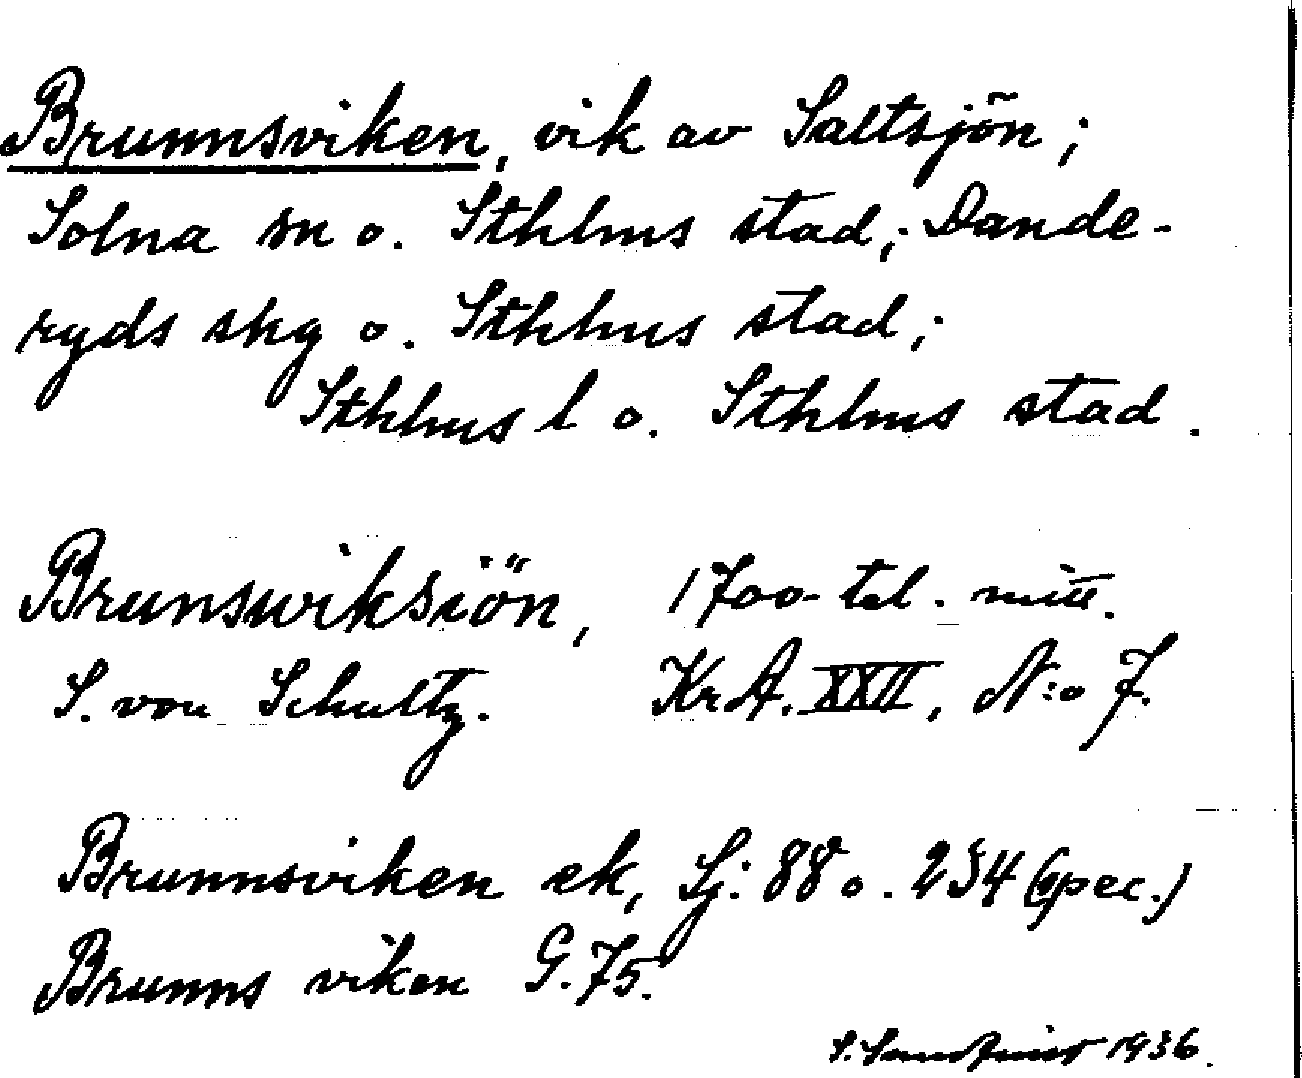 Brunnsviken, vik av Saltsjön;
Solna sn o. Sthlms stad; Dande-
ryds skg o. Sthlms stad;
Sthlms l o. Sthlms stad.
Brunswiksiön, 1700-tal. mitt.
S. von Schultz. KrA. XXII, N:o 7.
Brunnsviken ek, Sj: 88 o. 234 (spec.)
Brunns viken G. 75.
S. 1936.